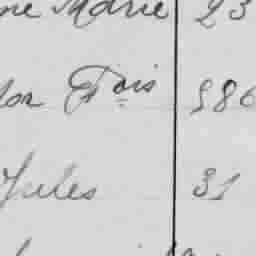 ne Marie 23
or Fois 986
Jules 31